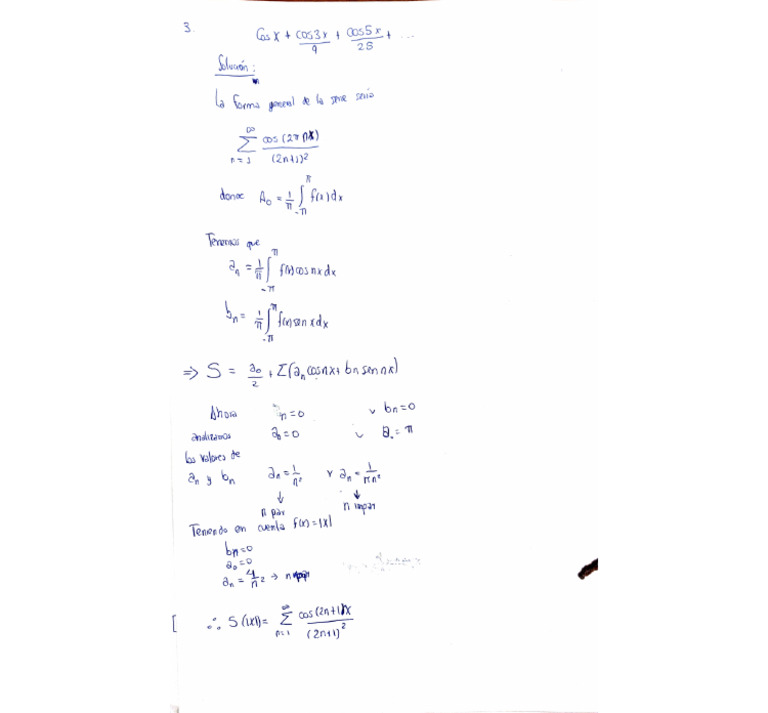 3. Cos x + cos3x/9 + cos5x/25 + ...
Solución:
La forma general de la serie sería
∞ Σ n=1 cos(2πnx)/(2n+1)²
donde A₀ = 1/π ∫_{-π}^{π} f(x)dx
Tenemos que
aₙ = 1/π ∫_{-π}^{π} f(x)cosnxdx
bₙ = 1/π ∫_{-π}^{π} f(x)sen xdx
⇒ S = a₀/2 + Σ(aₙ cosnx + bn sen nx)
Ahora n=0 v bn=0
analizamos a₀=0 v a₀=π
los valores de
aₙ y bₙ aₙ=1/n² v aₙ=1/πn²
↓ ↓
n par n impar
Teniendo en cuenta f(x)=|x|
bn=0
a₀=0
aₙ=4/n² → n
[ ∴ S(|x|)= ∞ Σ n=1 cos(2n+1)x/(2n+1)²